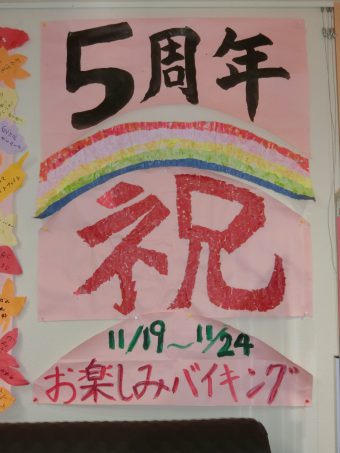 5周年
祝
11/19～11/24
お楽しみバイキング